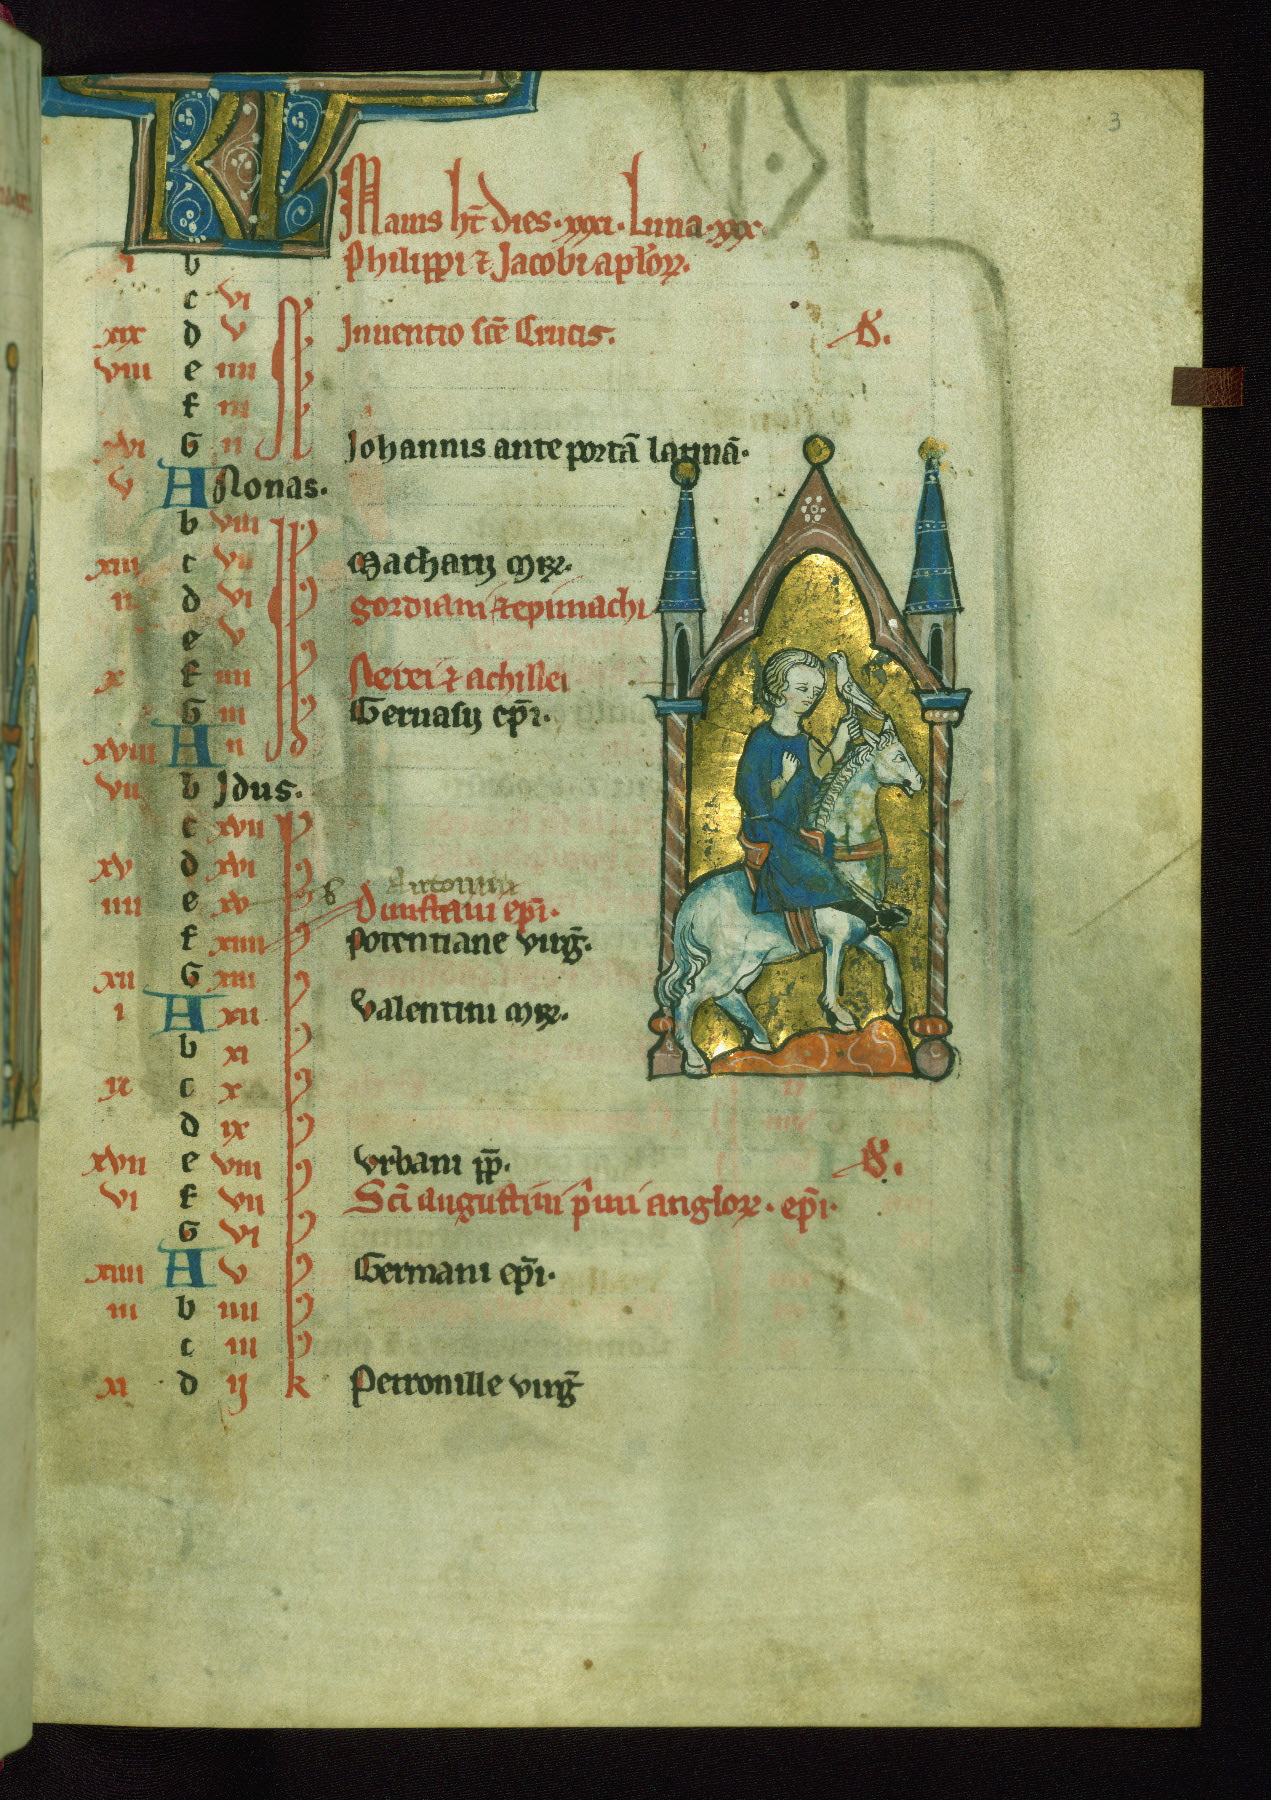 3
KL Maius ht̄ dies · xxxi · Luna · xxx ·
i b Philippi ⁊ Jacobi aplōꝝ.
c vi
xix d v Inuentio sc̄e Crucis. D.
viii e iiii
f iii
xvi G ii Johannis ante portā latinā.
v A Nonas.
b viii
xiii c vii Macharij mr̄.
ii d vi gordiani ⁊ epimachi
e v
x f iiii Nerei ⁊ achillei
G iii Geruasij ep̄i.
xviii A ii
vii b Jdus.
c xvii
xv d xvi
iiii e xv Dunstani ep̄i.
f xiiii Potentiane virḡ.
xii G xiii
i A xii Valentini mr̄.
b xi
ix c x
d ix
xvii e viii Vrbani pp̄. D.
vi f vii Sc̄i augustini p̄mi angloꝝ. ep̄i.
G vi
xiiii A v Germani ep̄i.
iii b iiii
c iii
xi d ij k Petronille virḡ